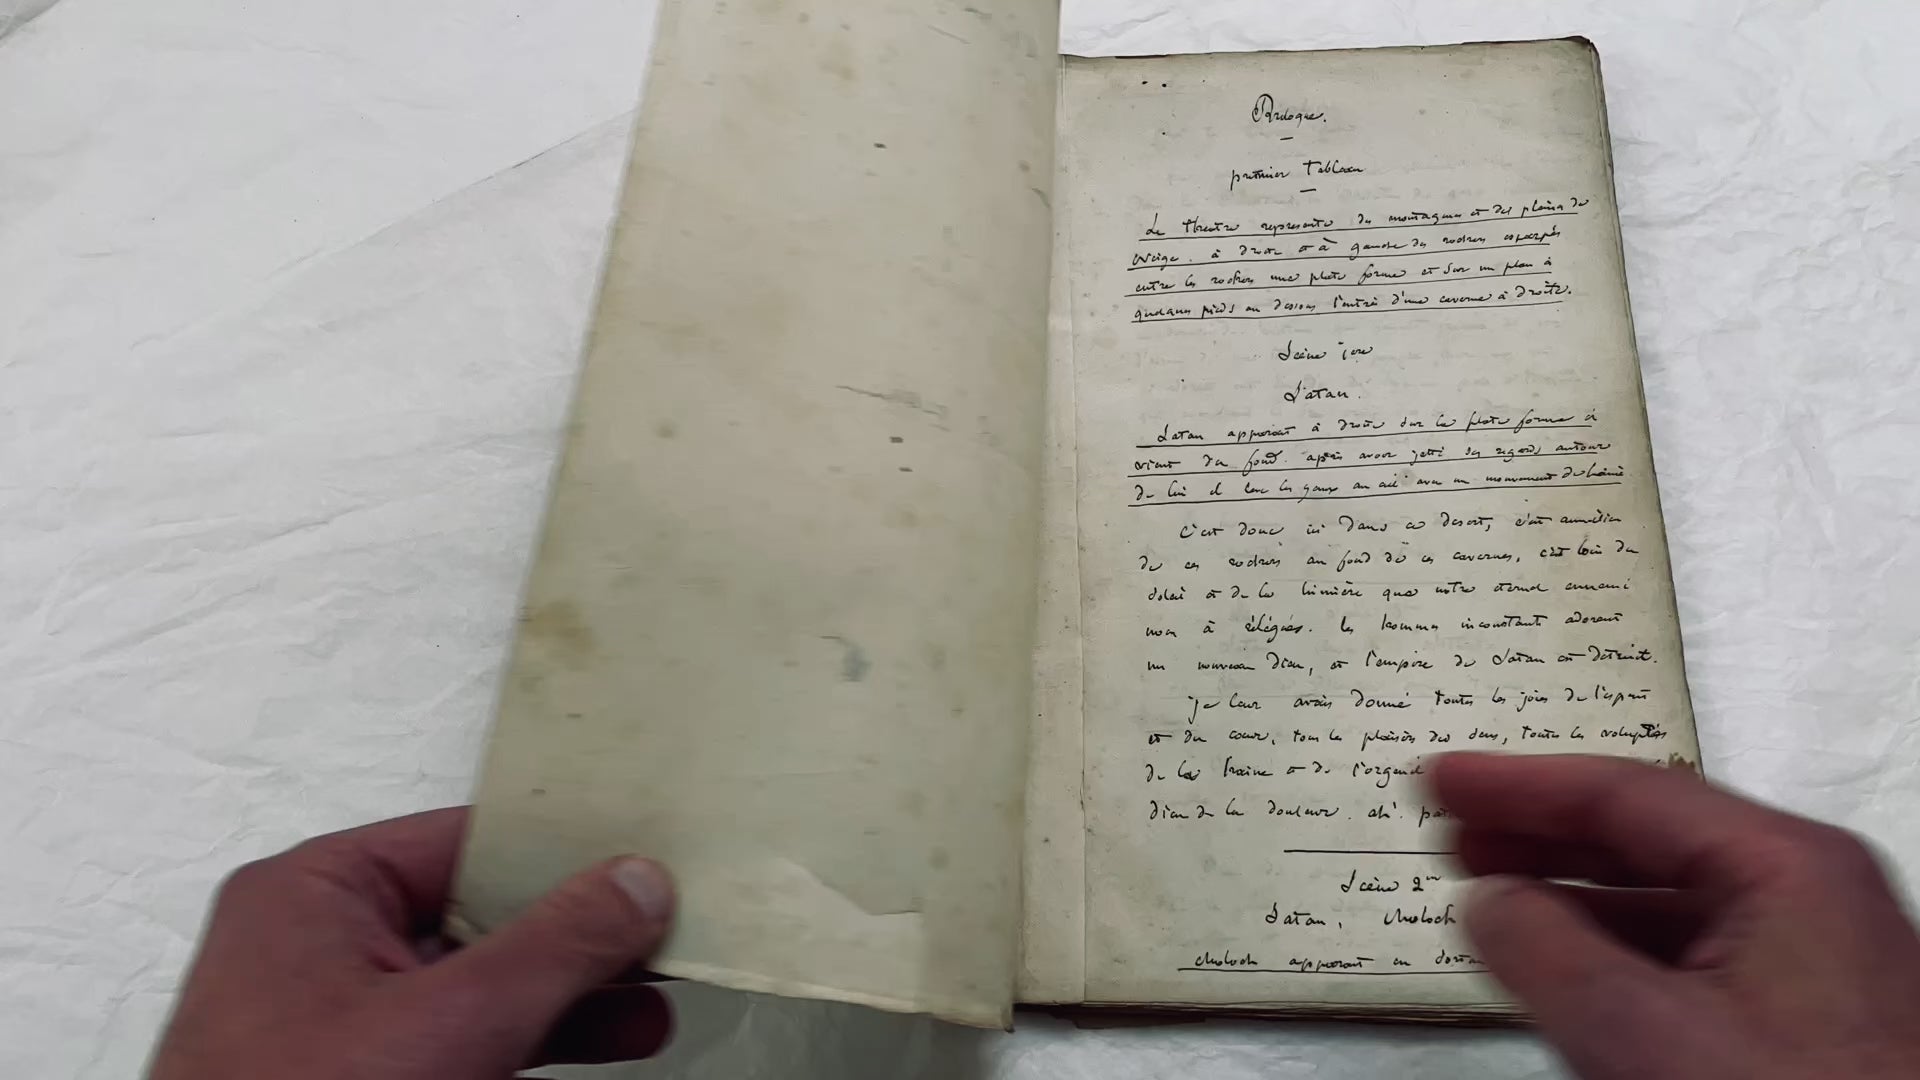 Prologue.
premier Tableau
Le theatre represente des montagnes et des plaines de
Neige. à droite et à gauche des rochers escarpés
entre les rochers une plate forme et sur un plan à
quelques pieds au dessous l'entrée d'une caverne à droite.
Scène 1ere
Satan.
Satan apparait à droite sur la plate forme il
vient du fond. après avoir jetté ses regards autour
de lui il leve les yeux au ciel avec un mouvement de haine
C'est donc ici dans ce desert, c'est au milieu
de ces rochers au fond de ces cavernes, c'est loin du
soleil et de la lumière que notre eternel ennemi
nous à rélégués. les hommes inconstants adorent
un nouveau Dieu, et l'empire de Satan est Detruit.
je leur avais donné toutes les joies de l'esprit
et du coeur, tous les plaisirs des sens, toutes les voluptés
de la haine et de l'orgueil
dieu de la douleur. ah!
Scène 2me
Satan, Moloch
Moloch apparait en